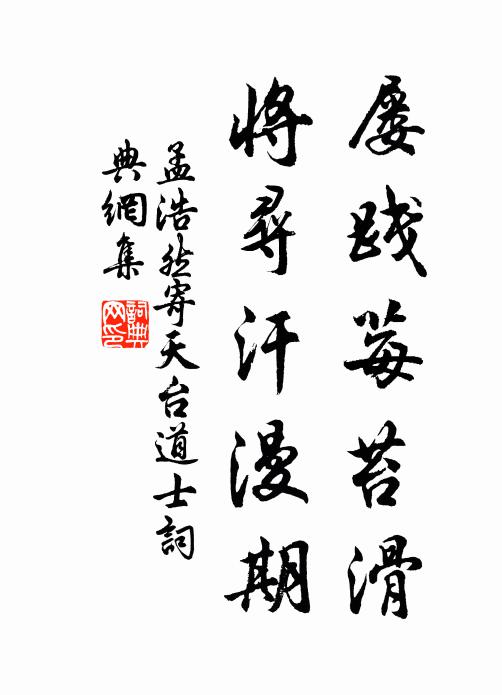 屢踐莓苔滑
將尋汗漫期
孟浩然寄天台道士詞
典網集
詞典網印